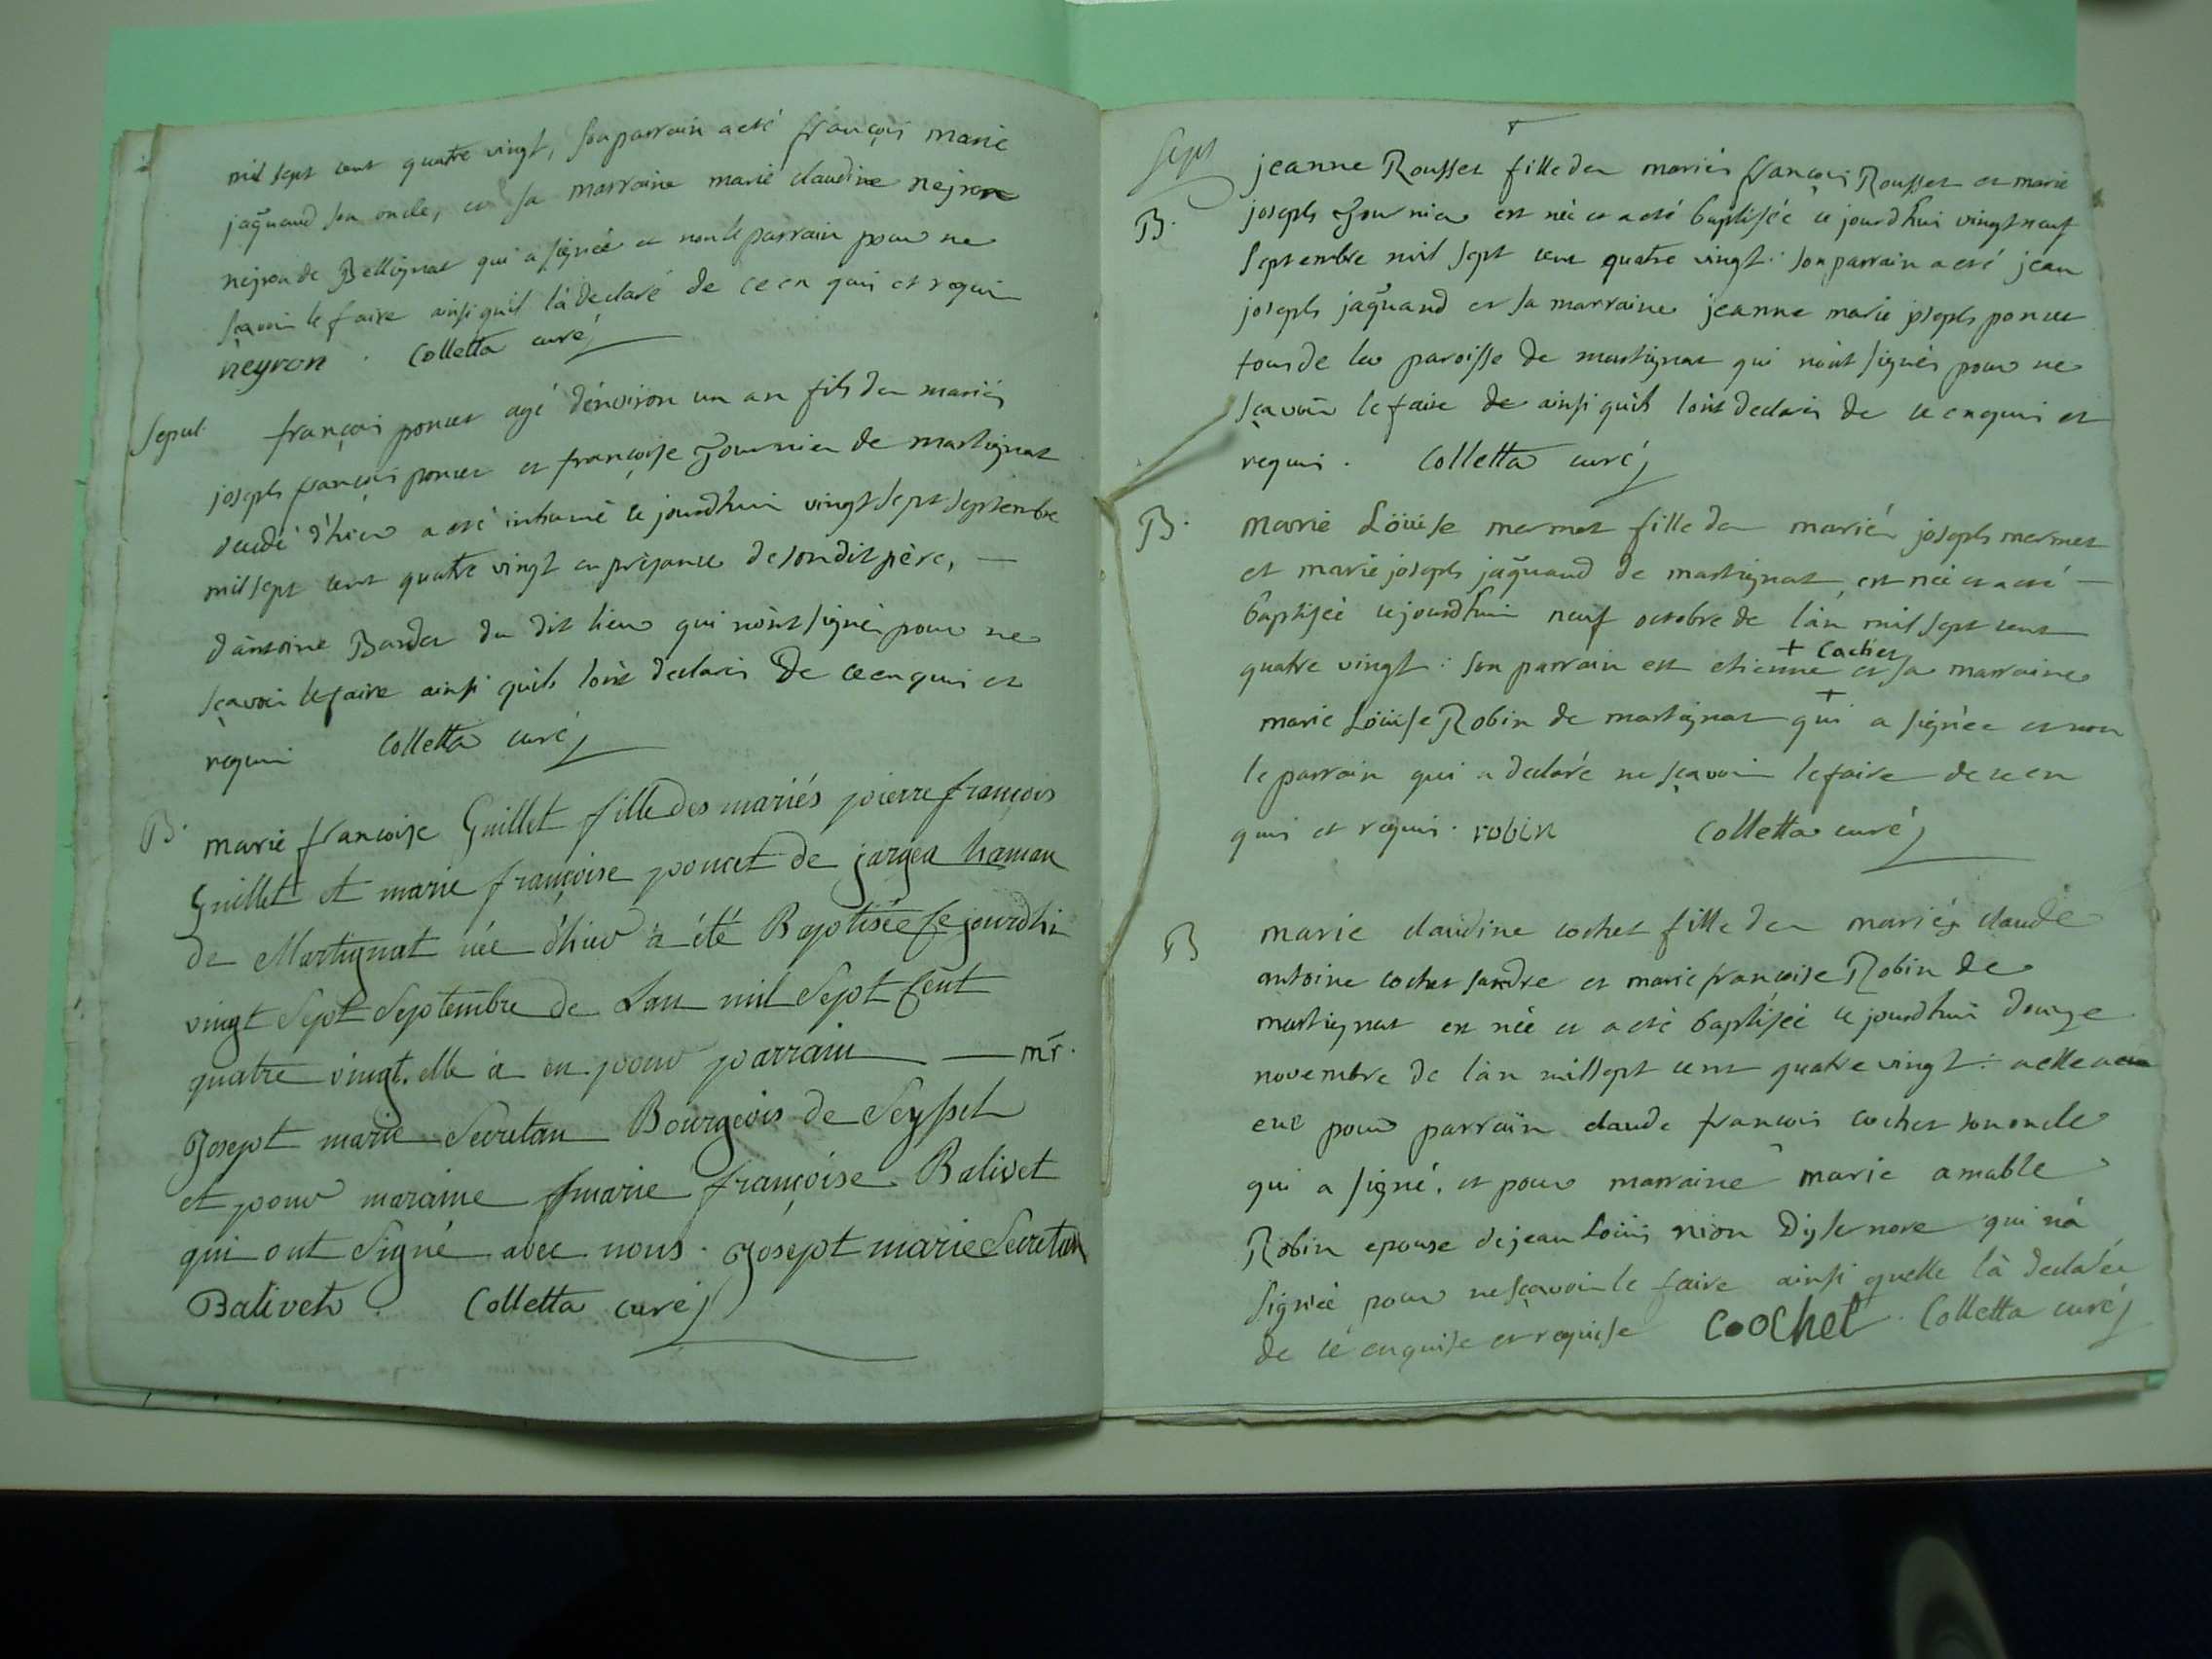 mil sept cent quatre vingt, son parrain a eté françois marie
jaquand son oncle, et sa marraine marie claudine nejron
nejron de Bellignat qui a signée et non le parrain pour ne
sçavoir le faire ainsi quil la declaré de ce en quis et requis
neyron . Colletta curé
Sepul. françois poncet agé dénviron un an fils des mariés
joseph françois poncet et françoise Journier de martignat
decedé d'hier a eté inhumé ce jourdhui vingt sept septembre
mil sept cent quatre vingt en présence de son dit père, —
d'antoine Bardet du dit lieu qui n'ont signés pour ne
sçavoir le faire ainsi quils l'ont declarés de ce enquis et
requis Colletta curé
B. marie francoise Guillet fille des mariés pierre françois
Guillet et marie françoise poncet de jargea hamau
de Martignat née d'hier à été Baptisée Ce jourdhi
vingt Sept Septembre de Lan mil Sept Cent
quatre vingt. elle à eu pour parrain — mr.
Josept marie Secretan Bourgeois de Seyssel
et pour maraine marie françoise Balivet
qui ont Signé avec nous. Josept marie Secretan
Balivet Colletta curé
Sept jeanne Rousset fille des mariés françois Rousset et marie
B. joseph Journier est née et a eté baptisée ce jourdhui vingt neuf
Septembre mil sept cent quatre vingt : son parrain a eté jean
joseph jaquand et sa marraine jeanne marie joseph poncet
tous de la paroisse de martignat qui n'ont signés pour ne
sçavoir le faire de ainsi quils l'ont declarés de ce enquis et
requis . Colletta curé
B. Marie Loüise mermet fille des mariés joseph mermet
et marie joseph jaquand de martignat est née et a eté —
baptisée ce jourdhui neuf octobre de l'an mil sept cent
+ Cachet
quatre vingt : son parrain est etienne et sa marraine
marie Loüise Robin de martignat qui a signée et non
le parrain qui a declaré ne sçavoir le faire de ce en
quis et requis . robin Colletta curé
B marie claudine cochet fille des mariés claude
antoine cochet sandre et marie francoise Robin de
martignat est née et a eté baptisée ce jourdhui douze
novembre de l'an mil sept cent quatre vingt : a elle
eue pour parrain claude françois cochet son oncle
qui a signé, et pour marraine marie amable
Robin epouse de jean Loüis nion Dysernore qui n'a
signée pour ne sçavoir le faire ainsi quelle là declarée
de ce enquise et requise Coochet . Colletta curé